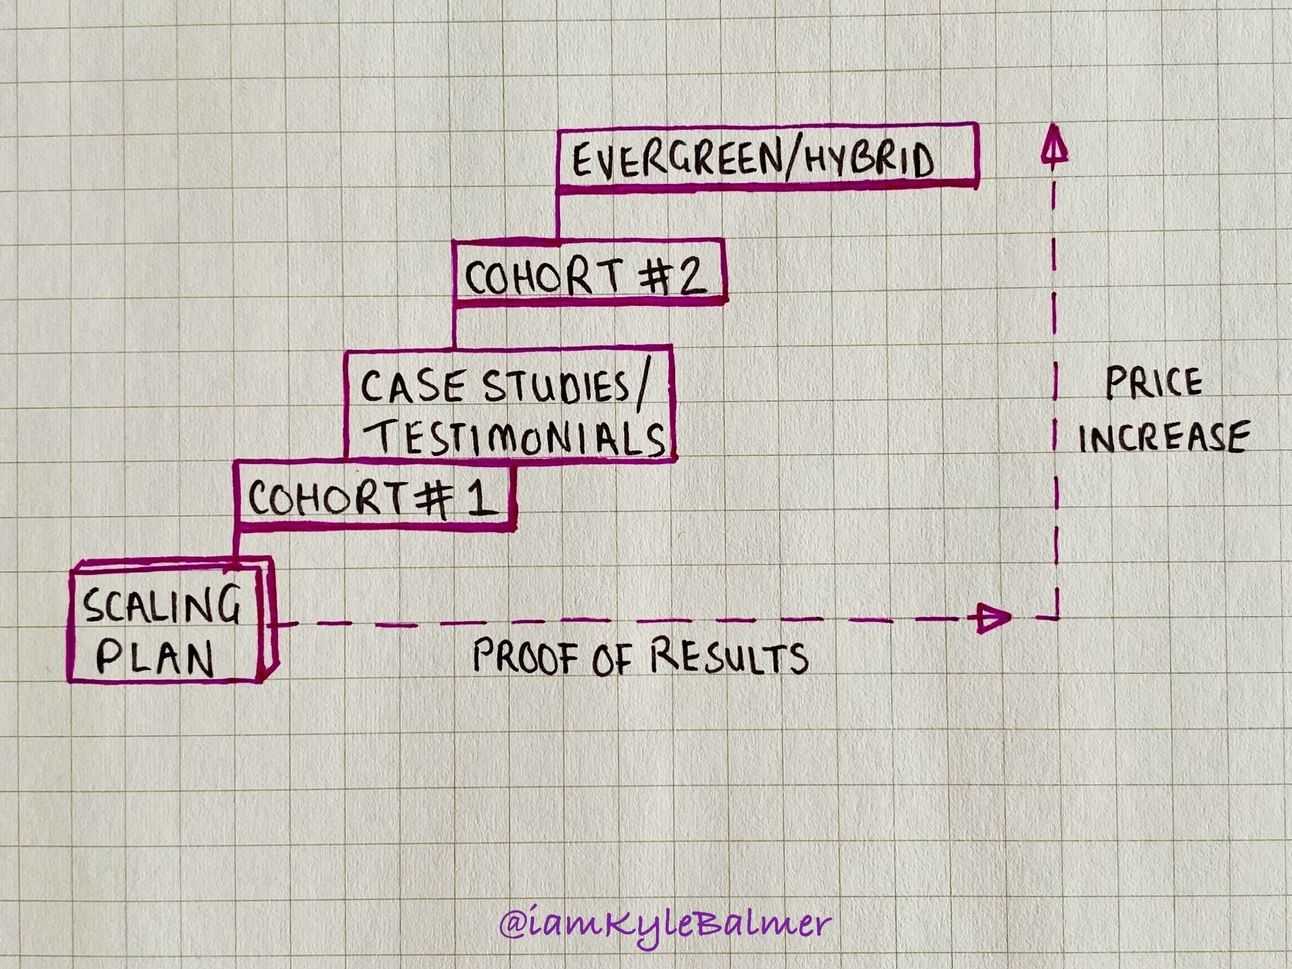 EVERGREEN/HYBRID
COHORT #2
CASE STUDIES/
TESTIMONIALS
COHORT #1
SCALING
PLAN
PROOF OF RESULTS
PRICE
INCREASE
@iamKyleBalmer